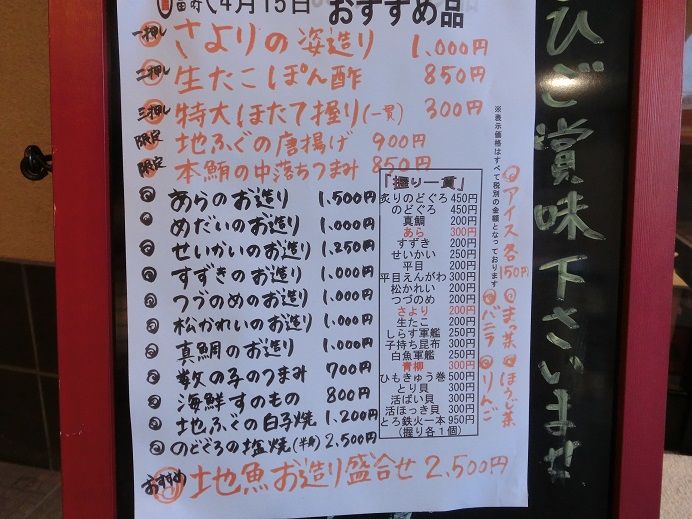 富寿し 4月15日 おすすめ品
一押し さよりの姿造り 1,000円
二押し 生たこぽん酢 850円
三押し 特大ほたて握り(一貫) 300円
限定 地ふぐの唐揚げ 900円
限定 本鮪の中落ちつまみ 850円
あらのお造り 1,500円
めだいのお造り 1,000円
せいかいのお造り 1,250円
すずきのお造り 1,000円
つづのめのお造り 1,000円
松かれいのお造り 1,000円
真鯛のお造り 1,000円
数の子のつまみ 700円
海鮮すのもの 800円
地ふぐの白子焼 1,200円
のどぐろの塩焼(半身) 2,500円
おすすめ 地魚お造り盛合せ 2,500円
「握り一貫」
炙りのどぐろ 450円
のどぐろ 450円
真鯛 200円
あら 300円
すずき 200円
せいかい 250円
平目 200円
平目えんがわ 300円
松かれい 200円
つづのめ 200円
さより 200円
生たこ 200円
しらす軍艦 250円
子持ち昆布 300円
白魚軍艦 250円
青柳 300円
ひもきゅう巻 500円
とり貝 300円
活ばい貝 300円
活ほっき貝 300円
とろ鉄火一本 950円
(握り各1個)
※表示価格はすべて税別の金額となっております
アイス各150円
まっ茶
ほうじ茶
バニラ
りんご
ぜひご賞味下さいませ